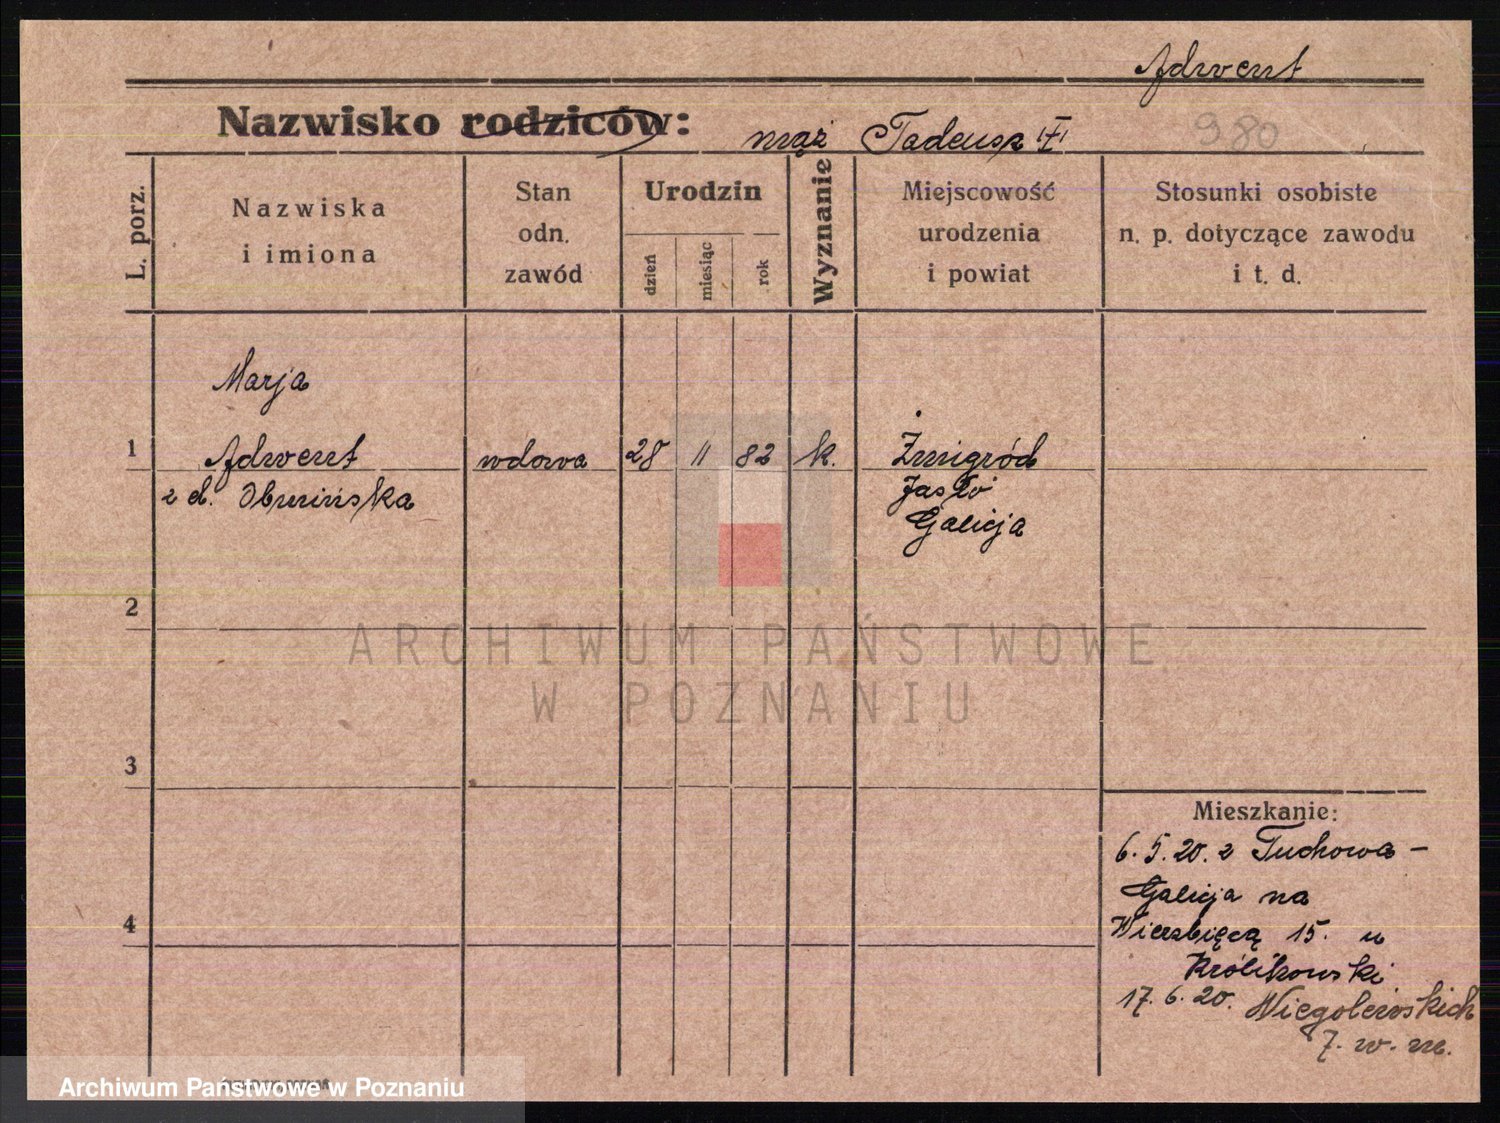 Adwent
Nazwisko rodziców: mąż Tadeusz
980
L. porz.
Nazwiska
i imiona
Stan
odn.
zawód
Urodzin
dzień
miesiąc
rok
Wyznanie
Miejscowość
urodzenia
i powiat
Stosunki osobiste
n. p. dotyczące zawodu
i t. d.
Marja
1 Adwent wdowa 28 11 82 k. Żmigród
z d. Obmińska Jasło
Galicja
2
ARCHIWUM PAŃSTWOWE
W POZNANIU
3
Mieszkanie:
6. 5. 20. z Tuchowa –
Galicja na
4
Wierzbięcą 15. u
Królikowski
17. 6. 20.
7. w. m.
Archiwum Państwowe w Poznaniu